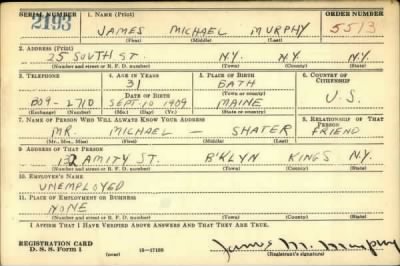 SERIAL NUMBER 1. NAME (Print) ORDER NUMBER
2193 JAMES MICHAEL MURPHY 5513
(First) (Middle) (Last)
2. ADDRESS (Print)
25 SOUTH ST. N.Y. N.Y. N.Y.
(Number and street or R. F. D. number) (Town) (County) (State)
3. TELEPHONE 4. AGE IN YEARS 5. PLACE OF BIRTH 6. COUNTRY OF CITIZENSHIP
31 BATH
DATE OF BIRTH (Town or county)
BO9-2710 SEPT. 10 1909 MAINE U.S.
(Exchange) (Number) (Mo.) (Day) (Yr.) (State or country)
7. NAME OF PERSON WHO WILL ALWAYS KNOW YOUR ADDRESS 8. RELATIONSHIP OF THAT PERSON
MR. MICHAEL — SHATER FRIEND
(Mr., Mrs., Miss) (First) (Middle) (Last)
9. ADDRESS OF THAT PERSON
132 AMITY ST. B'KLYN KINGS N.Y.
(Number and street or R. F. D. number) (Town) (County) (State)
10. EMPLOYER'S NAME
UNEMPLOYED
11. PLACE OF EMPLOYMENT OR BUSINESS
NONE
(Number and street or R. F. D. number) (Town) (County) (State)
I AFFIRM THAT I HAVE VERIFIED ABOVE ANSWERS AND THAT THEY ARE TRUE.
REGISTRATION CARD
D. S. S. Form 1 (over) James M. Murphy
(Registrant's signature)